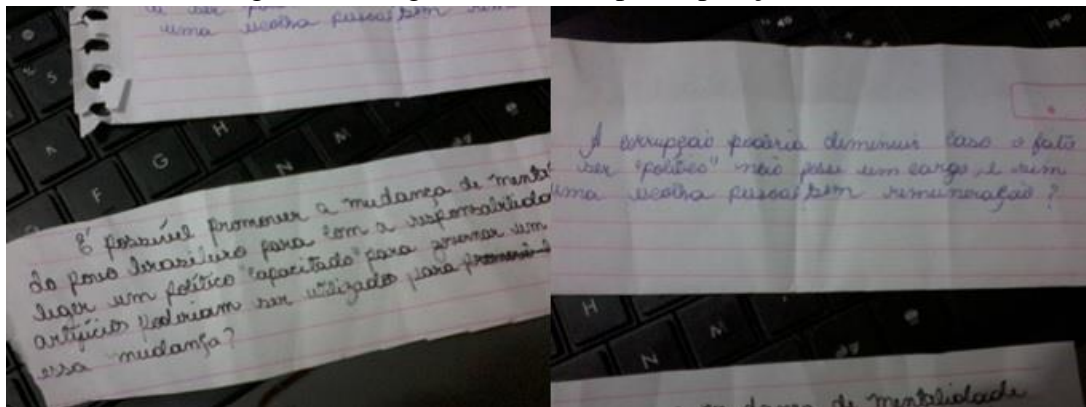 uma escolha pessoal sem
É possível promover a mudança de
do povo brasileiro para com a responsabilidade
leger um político "capacitado" para governar um
artifícios poderiam ser utilizados para
essa mudança?
A corrupção poderia diminuir caso o fato
ser "político" não fosse um cargo e sim
uma escolha pessoal sem remuneração?
de mentalidade